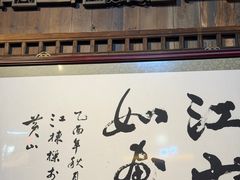 江山
如画
乙酉年秋月
江栋樑书
黄山